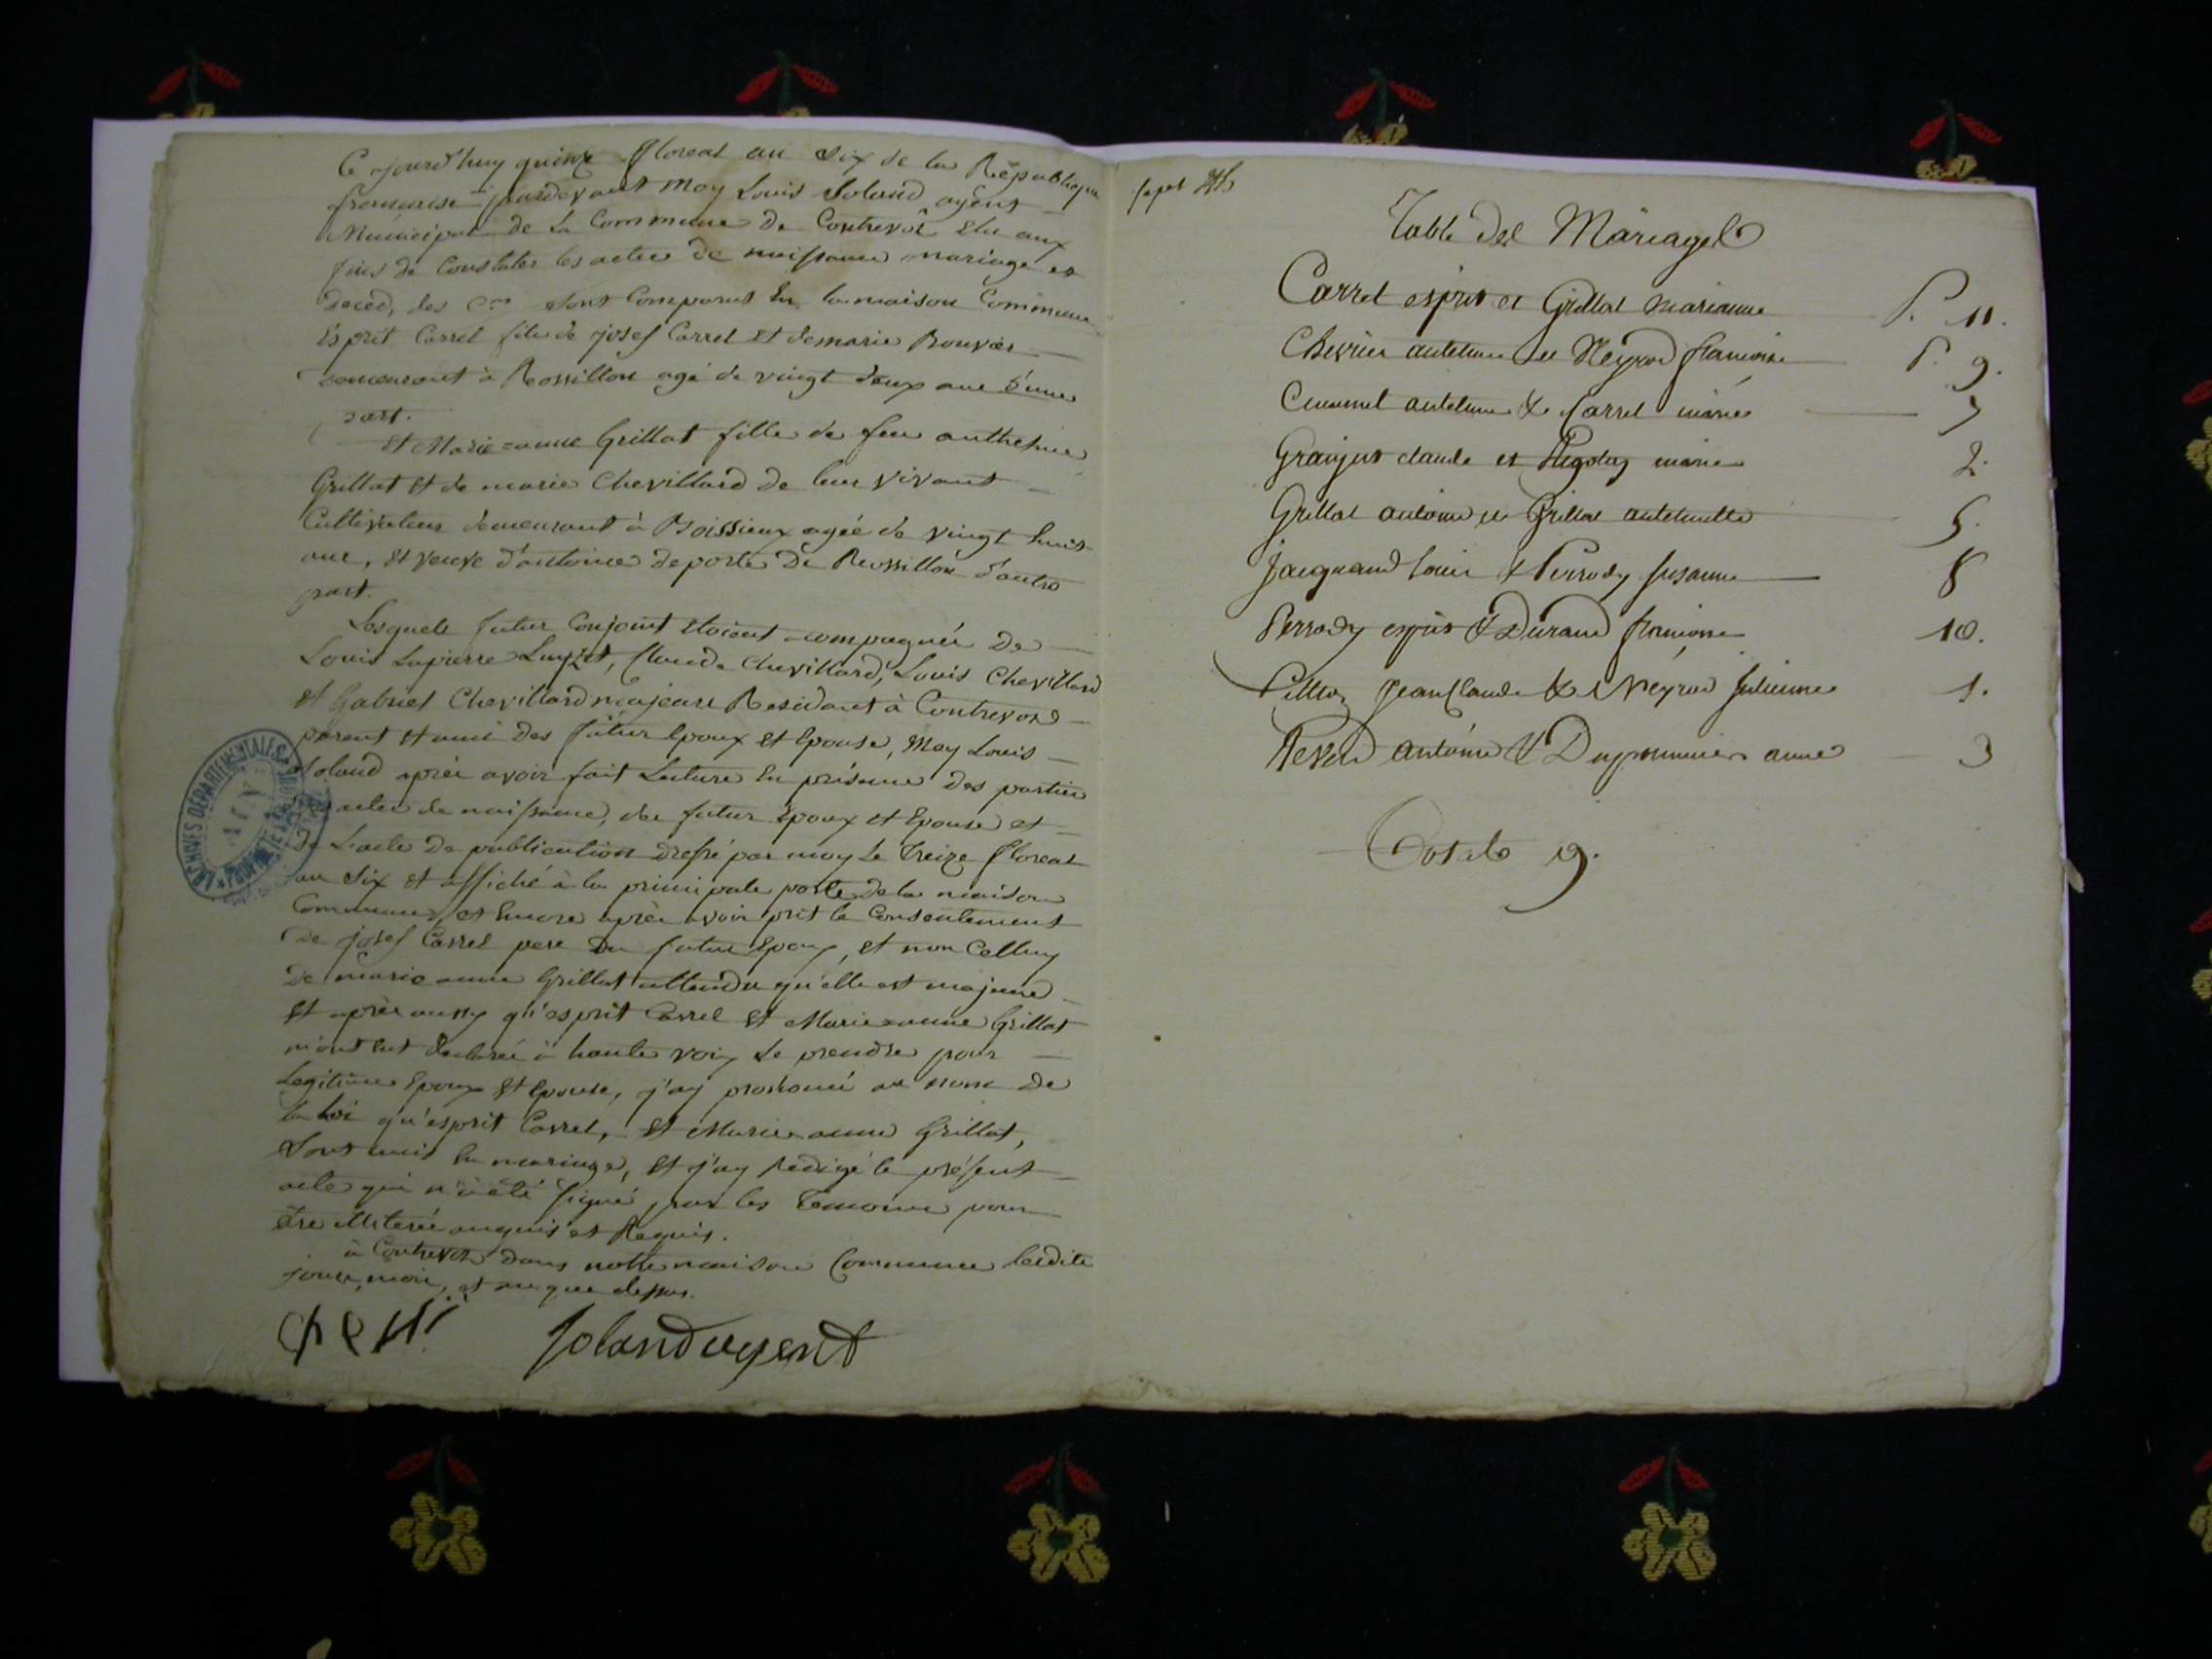 Ce jourd'huy quinze floreal an Six de la Republique
francaise pardevant moy Louis Soland agent
Municipal de la Commune de Contrevoz elu aux
fins de Constater les actes de naissance mariage et
deced, des C.ns sont Comparus En la maison Commune
Esprit Carrel fils de josef Carrel et de marie Bouvier
demeurant à Rossillon agé de vingt deux ans d'une
part.
Et Marie-anne Grillat fille de feu anthelme
Grillat et de marie Chevillard de leur vivant
Cultivateur demeurant à Boissieux agée de vingt huit
ans, et veuve d'antoine deporte De Rossillon d'autre
part.
Lesquels futur Conjoint etoient acompagnés De
Louis Lapierre Luyzet, Claude Chevillard, Louis Chevillard
et Gabriel Chevillard majeurs Residant à Contrevoz
parent et ami des futur Epoux et Epouse, Moy Louis
Soland aprés avoir fait Lecture En présence Des parties
actes de naissance, des futur Epoux et Epouse et
De L'acte De publication dressé par moy Le treize floreal
an Six et affiché à la principale porte De la maison
Commune, et Encore après avoir prit le Consentement
De josef Carrel pere Du futur Epoux, et non Celluy
De marie anne Grillat attendu qu'elle est majeure
Et après aussy qu'esprit Carrel et Marie-anne Grillat
m'ont eut declaré à haute voix se prendre pour
Legitime Epoux et Epouse, j'ay prononcé au nom de
la Loi qu'esprit Carrel, et Marie-anne Grillat,
Sont unis En mariage, et j'ay Redigé le présent
acte qui n'a eté signé par les temoins pour
être illiterée enquis et Requis.
à Contrevoz dans notre maison Commune lesdits
jour, mois, et an que dessus.
Soland agent
Table Des Mariages
Carrel esprit et Grillat marianne P. 11.
Chevrier antelme et Neyrod francoise P. 9.
antelme & Carrel marie 7
claude et marie 2.
Grillat antoine et Grillat antelmette 5.
Jacquand louis & Perrody susanne 8
Perrody esprit & Durand francoise 10.
Jean Claude & Neyrod Julienne 1.
antoine & anne 3
Total 9.
ARCHIVES DÉPARTEMENTALES
AIN